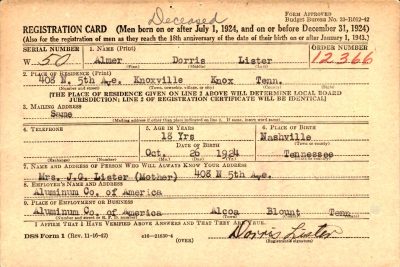 Deceased
FORM APPROVED
Budget Bureau No. 33-R012-42
REGISTRATION CARD (Men born on or after July 1, 1924, and on or before December 31, 1924)
(Also for the registration of men as they reach the 18th anniversary of the date of their birth on or after January 1, 1943.)
SERIAL NUMBER 1. NAME (Print) ORDER NUMBER
W 50 Almer Dorris Lister 12366
(First) (Middle) (Last)
2. PLACE OF RESIDENCE (Print)
408 N. 5th Ave. Knoxville Knox Tenn.
(Number and street) (Town, township, village, or city) (County) (State)
[THE PLACE OF RESIDENCE GIVEN ON LINE 2 ABOVE WILL DETERMINE LOCAL BOARD
JURISDICTION; LINE 2 OF REGISTRATION CERTIFICATE WILL BE IDENTICAL]
3. MAILING ADDRESS
Same
(Mailing address if other than place indicated on line 2. If same, insert word same)
4. TELEPHONE 5. AGE IN YEARS 6. PLACE OF BIRTH
18 Yrs Nashville
DATE OF BIRTH (Town or county)
Oct. 26 1924 Tennessee
(Exchange) (Number) (Mo.) (Day) (Yr.) (State or country)
7. NAME AND ADDRESS OF PERSON WHO WILL ALWAYS KNOW YOUR ADDRESS
Mrs. J.G. Lister (Mother) 408 N. 5th Ave.
8. EMPLOYER'S NAME AND ADDRESS
Aluminum Co. of America
9. PLACE OF EMPLOYMENT OR BUSINESS
Aluminum Co. of America Alcoa Blount Tenn
(Number and street or R. F. D. number) (Town) (County) (State)
I AFFIRM THAT I HAVE VERIFIED ABOVE ANSWERS AND THAT THEY ARE TRUE.
DSS Form 1 (Rev. 11-16-42) (OVER) Dorris Lister
(Registrant's signature)